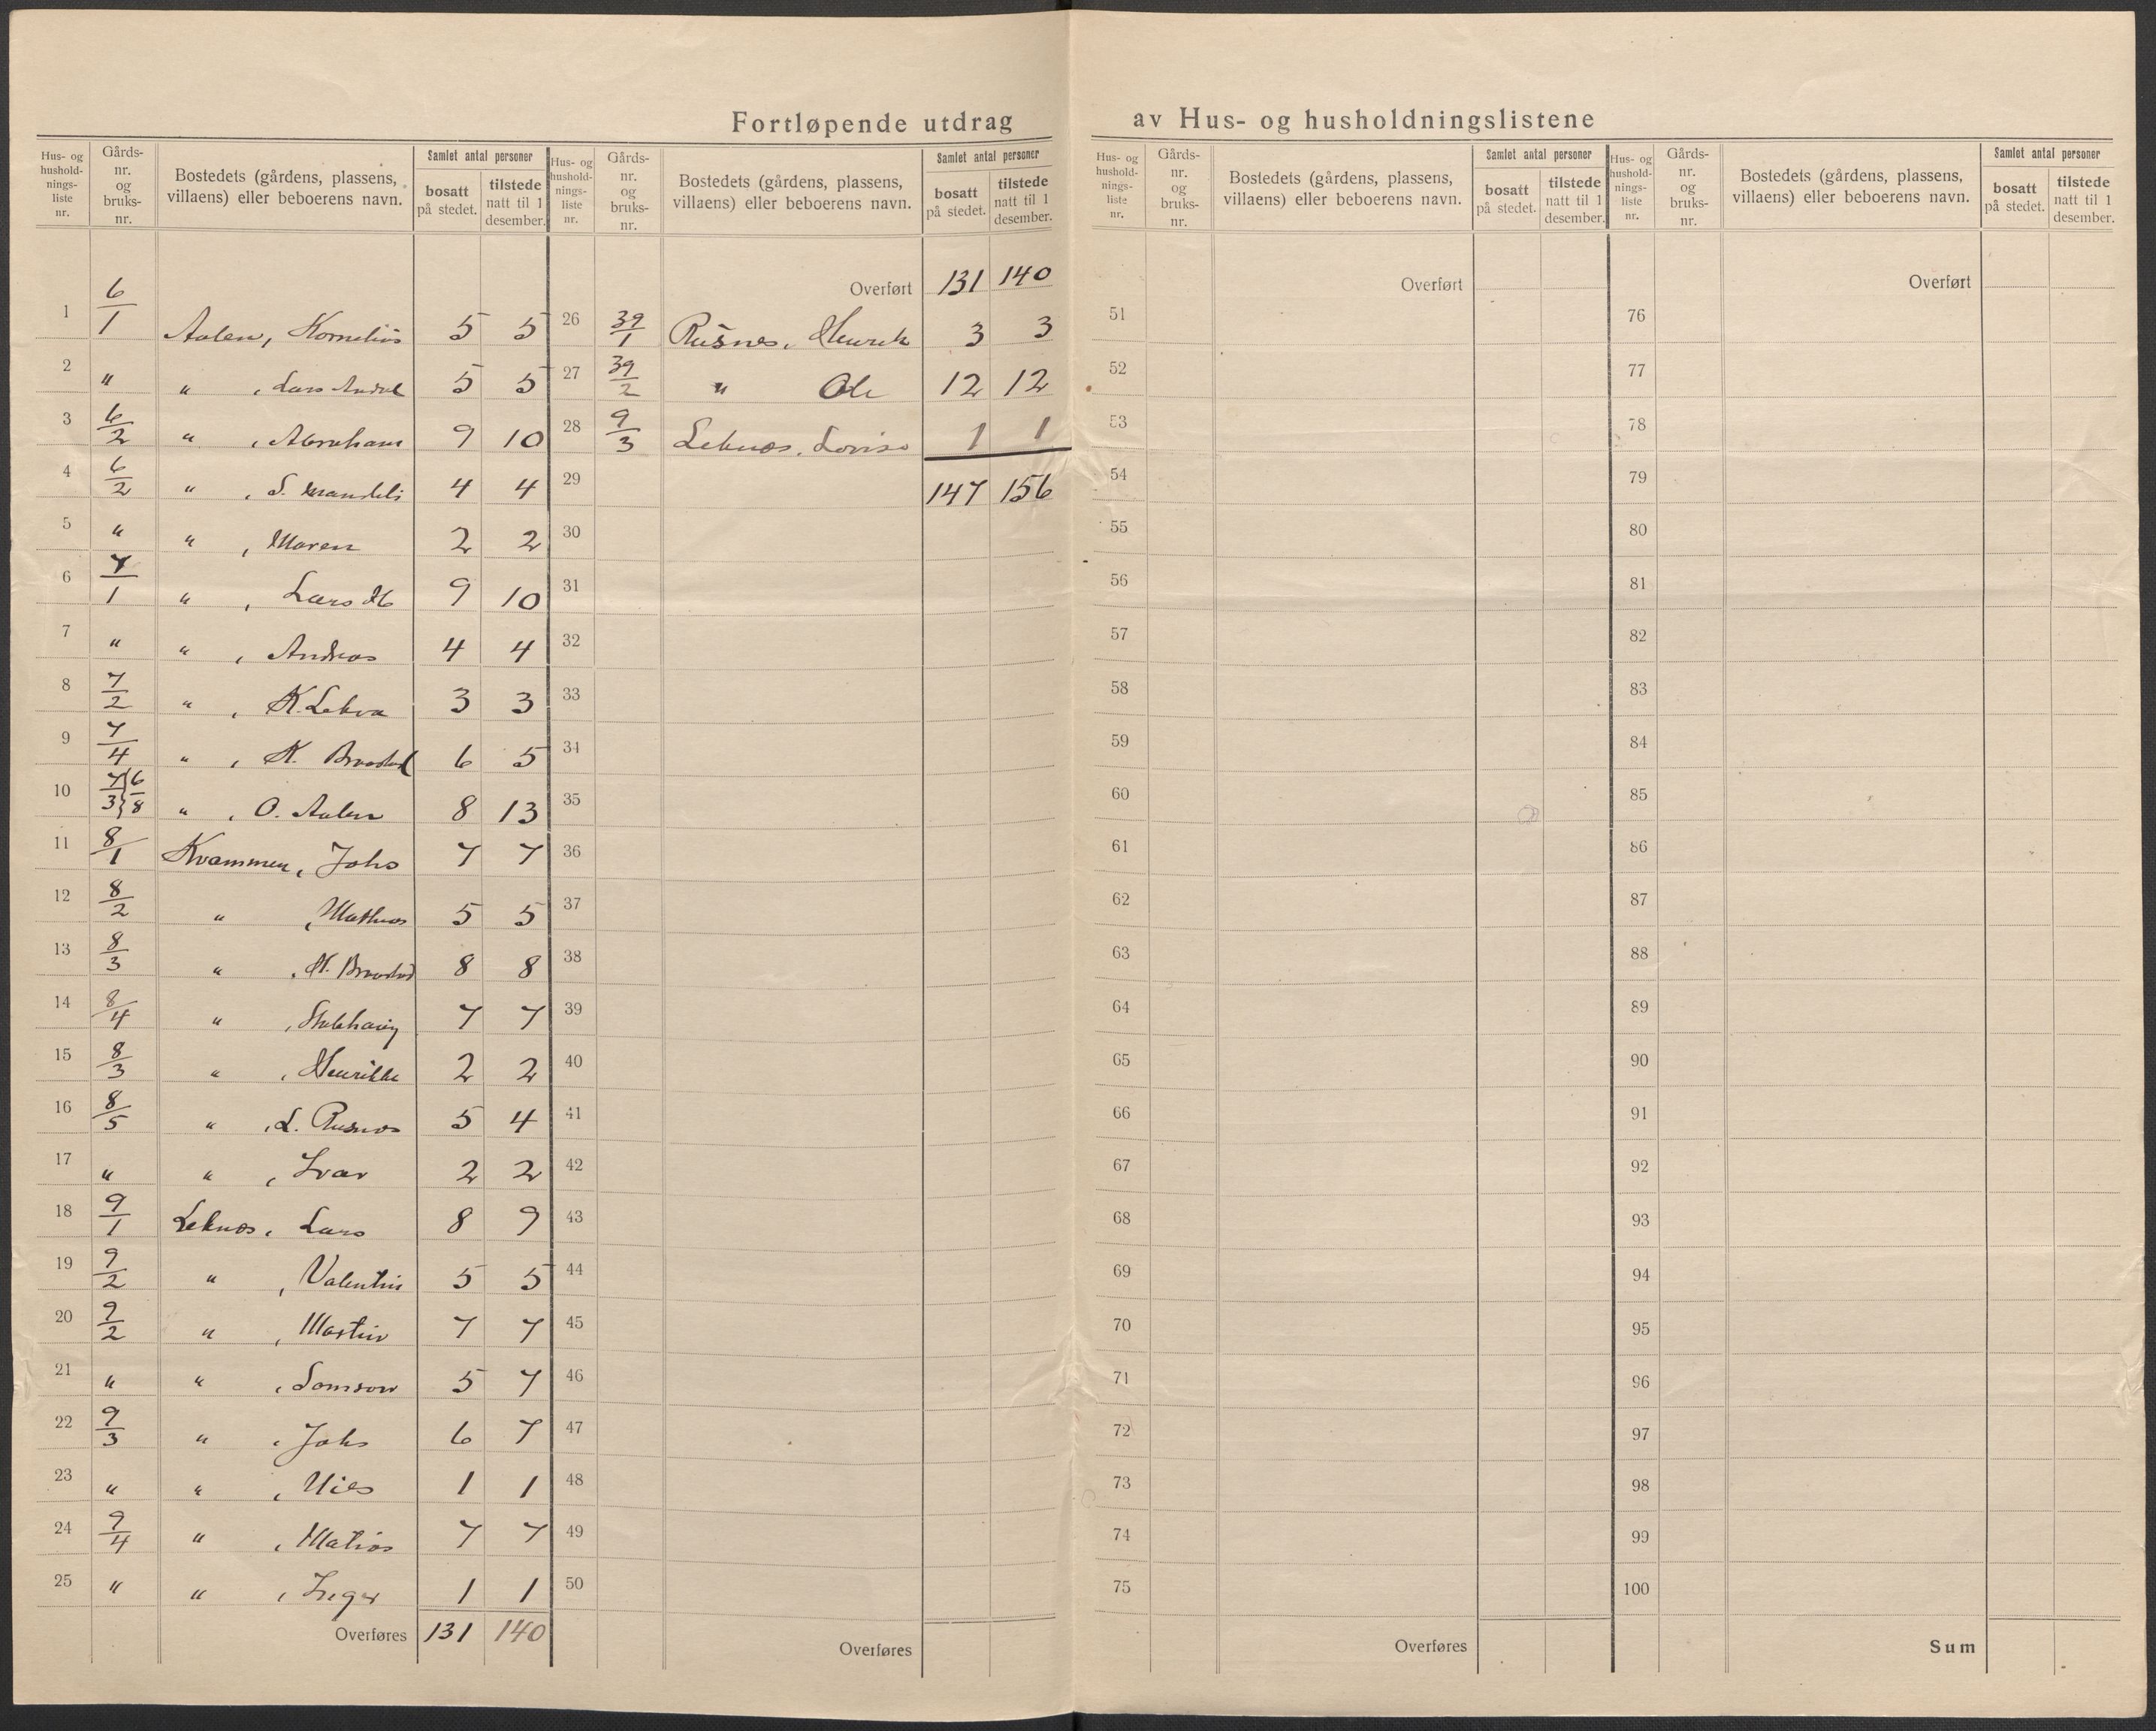 Fortløpende utdrag av Hus- og husholdningslistene
Hus- og hushold-nings-liste nr. Gårds-nr. og bruks-nr. Bostedets (gårdens, plassens, villaens) eller beboerens navn. Samlet antal personer bosatt på stedet. tilstede natt til 1 desember.
1 6/1 Aalen, Kornelius 5 5
2 " " , Lars Andr 5 5
3 6/2 " , Abraham 9 10
4 6/2 " , S. 4 4
5 " " , Maren 2 2
6 7/1 " , Lars 9 10
7 " " , Andreas 4 4
8 7/2 " , K. Lekva 3 3
9 7/4 " , K. 6 5
10 7/3 } 6/8 " , O. Aalen 8 13
11 8/1 Kvammen, Johs 7 7
12 8/2 " , Mathias 5 5
13 8/3 " , 8 8
14 8/4 " , 7 7
15 8/3 " , Henrikke 2 2
16 8/5 " , L. Rusnes 5 4
17 " " , Ivar 2 2
18 9/1 Leknes, Lars 8 9
19 9/2 " , Valentin 5 5
20 9/2 " , Martin 7 7
21 " " , Samson 5 7
22 9/3 " , Johs 6 7
23 " " , Nils 1 1
24 9/4 " , Matias 7 7
25 " " , Inger 1 1
Overføres 131 140
Hus- og hushold-nings-liste nr. Gårds-nr. og bruks-nr. Bostedets (gårdens, plassens, villaens) eller beboerens navn. Samlet antal personer bosatt på stedet. tilstede natt til 1 desember.
Overført 131 140
26 39/1 Rusnes, Henrik 3 3
27 39/2 " Ole 12 12
28 9/3 Leknes, Lovise 1 1
29 147 156
30
31
32
33
34
35
36
37
38
39
40
41
42
43
44
45
46
47
48
49
50
Overføres
Hus- og hushold-nings-liste nr. Gårds-nr. og bruks-nr. Bostedets (gårdens, plassens, villaens) eller beboerens navn. Samlet antal personer bosatt på stedet. tilstede natt til 1 desember.
Overført
51
52
53
54
55
56
57
58
59
60
61
62
63
64
65
66
67
68
69
70
71
72
73
74
75
Overføres
Hus- og hushold-nings-liste nr. Gårds-nr. og bruks-nr. Bostedets (gårdens, plassens, villaens) eller beboerens navn. Samlet antal personer bosatt på stedet. tilstede natt til 1 desember.
Overført
76
77
78
79
80
81
82
83
84
85
86
87
88
89
90
91
92
93
94
95
96
97
98
99
100
Sum